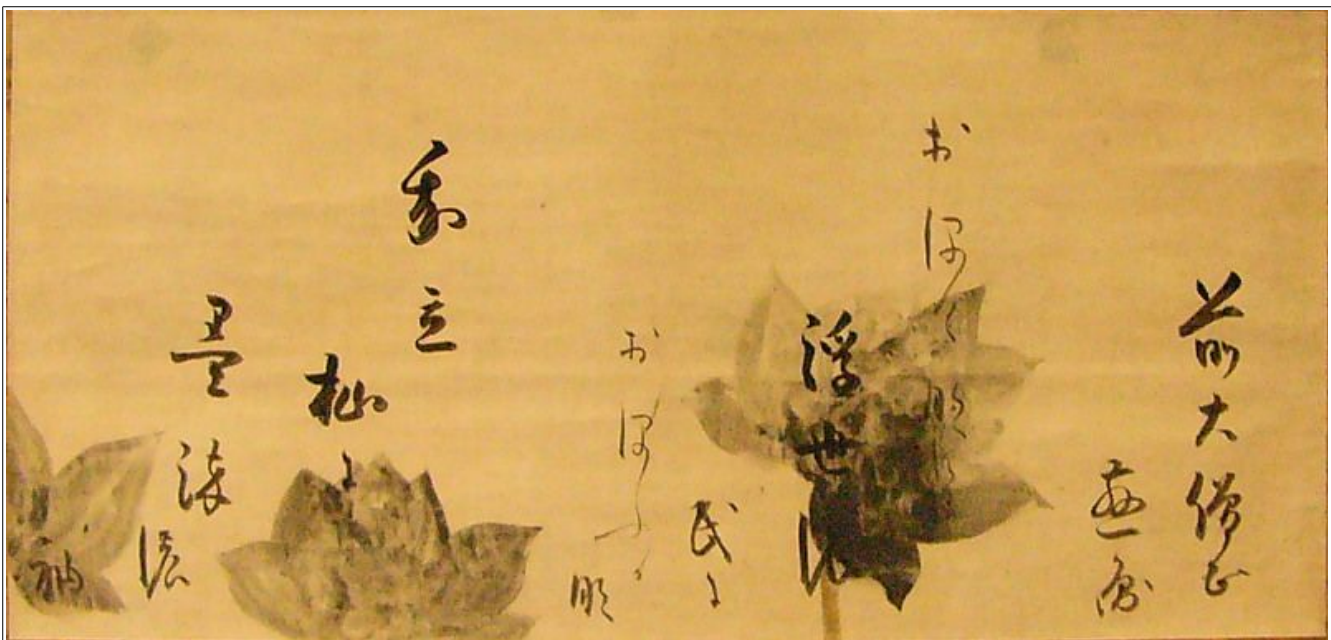 前大僧正
慈圓
おほけなく
浮世濃
民に
おほふか那
我立
杣に
墨染濃
袖